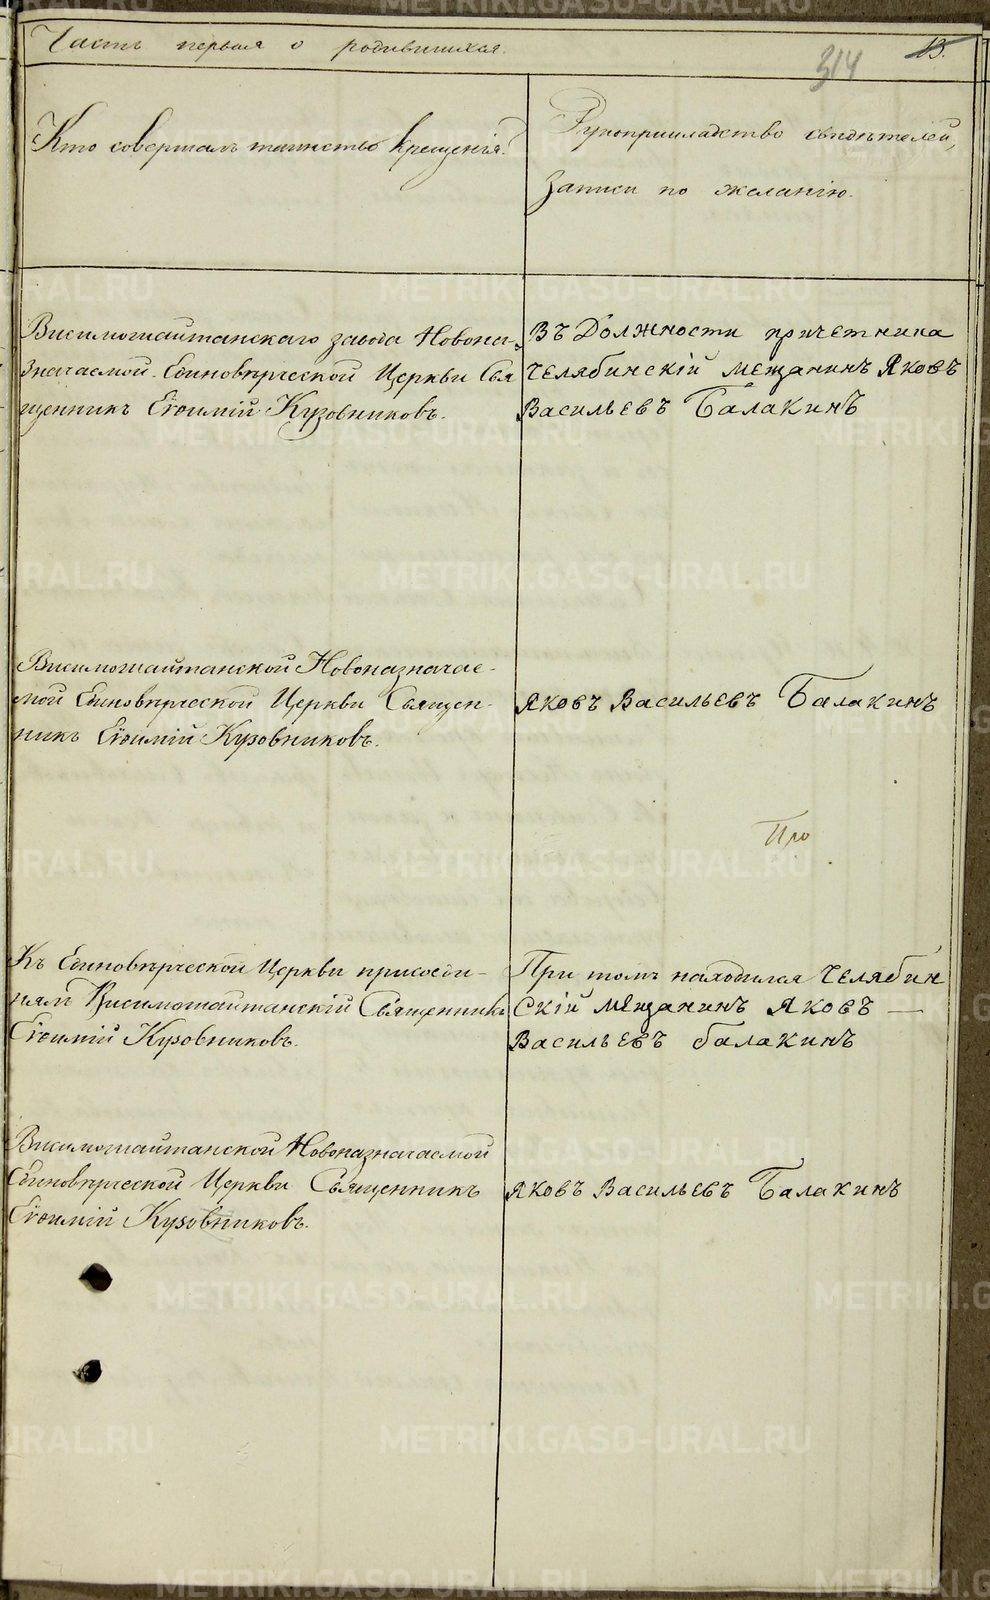 Часть первая о родившихся.
314
13.
Кто совершалъ таинство крещенія.
Рукоприкладство свидѣтелей,
записи по желанію.
Висимошайтанскаго завода Новона-
значаемой Единовѣрческой Церкви Свя
щенникъ Еѵѳимій Кузовниковъ.
Въ Должности причетника
Челябинскій мещанинъ Яковъ
Васильевъ Балакинъ
Висимошайтанской Новоназначае-
мой Единовѣрческой Церкви Священ-
никъ Еѵѳимій Кузовниковъ.
Яковъ Васильевъ Балакинъ
Про
Къ Единовѣрческой Церкви присоеди-
нялъ Висимошайтанскій Священникъ
Еѵѳимій Кузовниковъ.
При томъ находился Челябин
скій мещанинъ Яковъ —
Васильевъ балакинъ
Висимошайтанской Новоназначаемой
Единовѣрческой Церкви Священникъ
Еѵѳимій Кузовниковъ.
Яковъ Васильевъ Балакинъ
METRIKI.GASO-URAL.RU